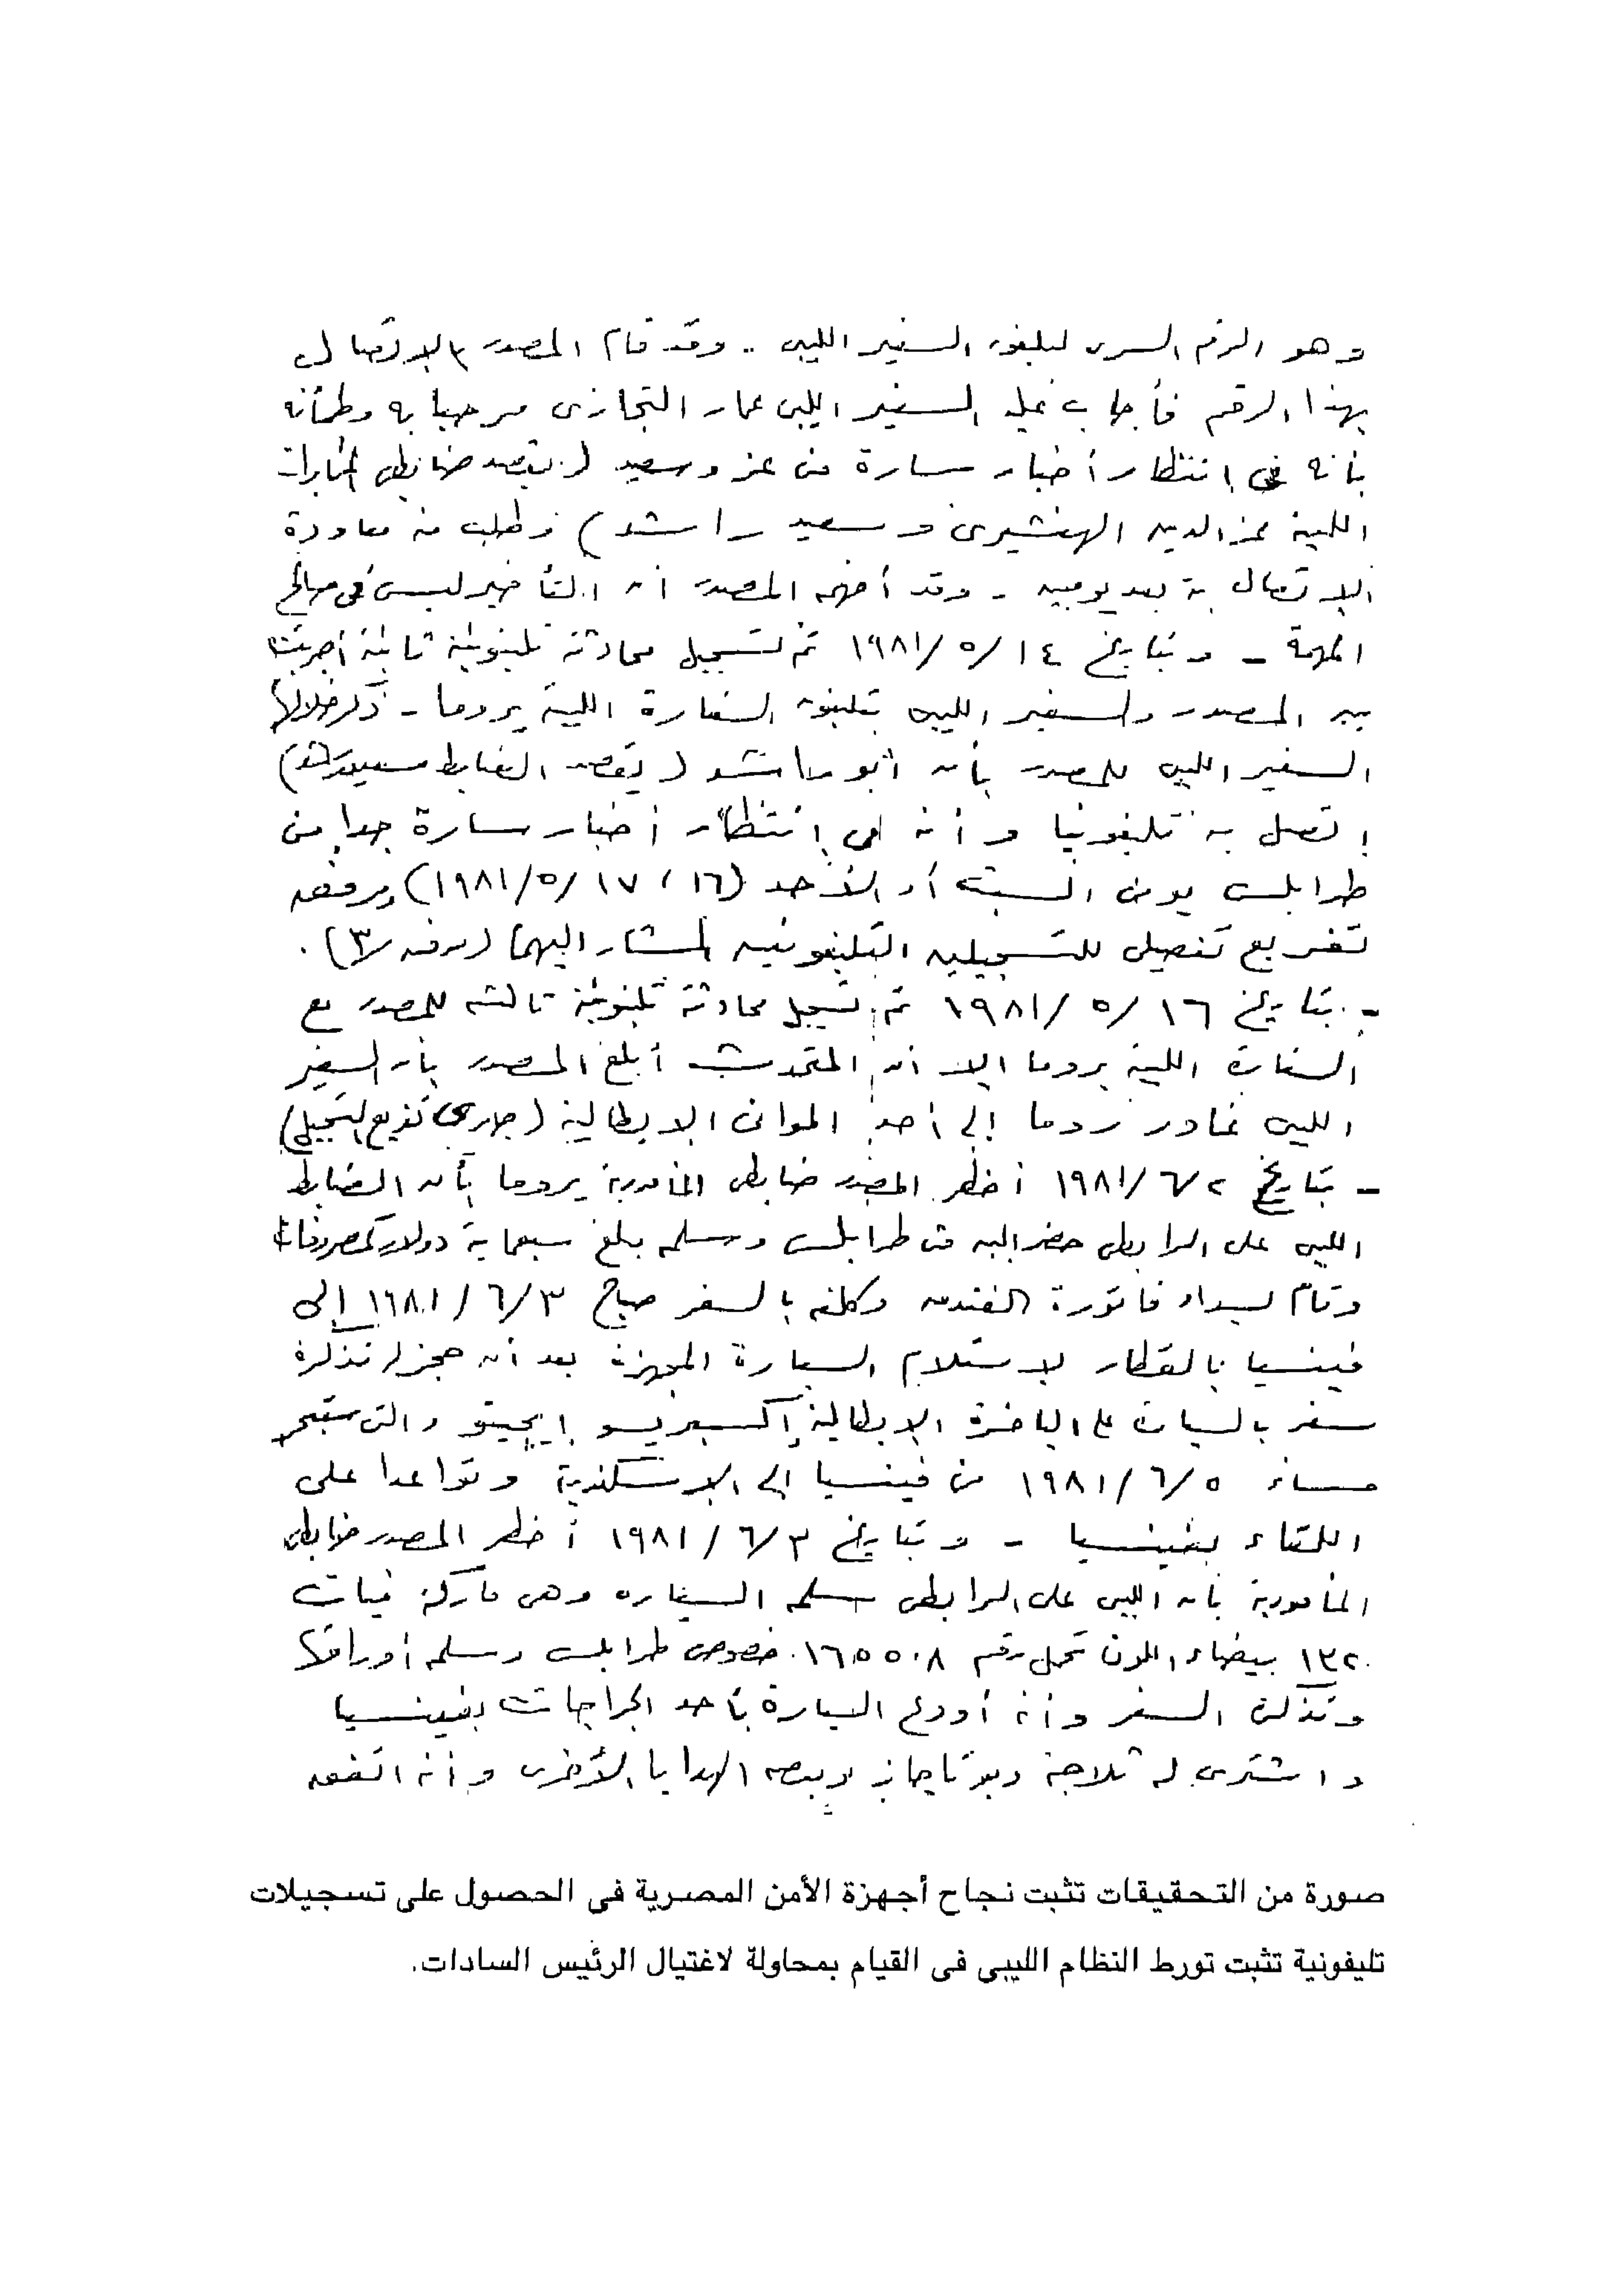 وهو الرقم السرى لتليفون السفير الليبى .. وقد قام المصدر بالإتصال
بهذا الرقم فأجاب عليه السفير الليبى عمار التجازى مرحبا به وطمأنه
بأنه فى إنتظار أخبار سارة من عز وسعيد ( يقصد ضابطى المخابرات
الليبية عز الدين الهنشيرى وسعيد راشد ) وطلب منه معاودة
الإتصال به بعد يومين - وقد أفهم المصدر أن التأخير ليس فى صالح
المهمة - وبتاريخ ١٤/٥/١٩٨١ تم تسجيل محادثة تليفونية ثانية أجريت
بين المصدر والسفير الليبى بتليفون السفارة الليبية بروما - ذكر خلالها
السفير الليبى للمصدر بأن أبو راشد ( يقصد الضابط سعيد راشد )
إتصل به تليفونيا وأنه فى إنتظار أخبار سارة جدا من
طرابلس يومى السبت أو الأحد (١٦ ، ١٧/٥/١٩٨١) ومرفق
تفريغ تفصيلى للتسجيلين التليفونيين المشار اليهما (مرفق/٣) .
- بتاريخ ١٦/٥/١٩٨١ تم تسجيل محادثة تليفونية ثالثة للمصدر مع
السفارة الليبية بروما إلا أن المتحدث أبلغ المصدر بأن السفير
الليبى غادر روما إلى أحد الموانى الإيطالية (جارى تفريغ التسجيل)
- بتاريخ ٦/٢/١٩٨١ أخطر المصدر ضابطى المأمورية بروما بأن الضابط
الليبى على الرابطى حضر اليه من طرابلس وسلمه مبلغ سبعماية دولار كمصروفات
وقام بسداد فاتورة الفندق وكلفه بالسفر صباح ٦/٣/١٩٨١ إلى
فينسيا بالقطار لإستلام السيارة المجهزة بعد أن حجز له تذكرة
سفر بالسيارة على الباخرة الإيطالية إكسبريسو إيجيتو والتى ستبحر
مساء ٦/٥/١٩٨١ من فينسيا إلى الإسكندرية وتواعدا على
اللقاء بفينسيا - وبتاريخ ٦/٣/١٩٨١ أخطر المصدر ضابطى
المأمورية بأن الليبى على الرابطى سلمه السيارة وهى ماركة فيات
١٣٢ بيضاء اللون تحمل رقم خصوصى طرابلس وسلمه أوراقها
وتذكرة السفر وأنه أودع السيارة بأحد الجراجات بفينسيا
واشترى له ثلاجة وبوتاجاز وبعض الهدايا الأخرى وأنه اتفق
صورة من التحقيقات تثبت نجاح أجهزة الأمن المصرية فى الحصول على تسجيلات
تليفونية تثبت تورط النظام الليبى فى القيام بمحاولة لاغتيال الرئيس السادات.